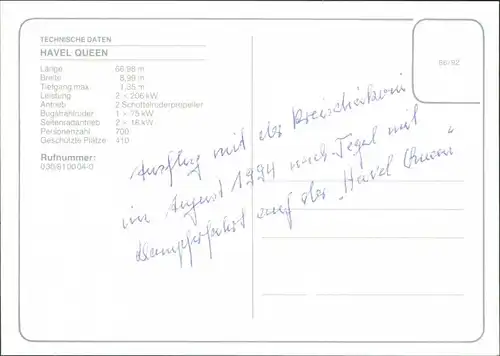 TECHNISCHE DATEN
HAVEL QUEEN
Länge 66,98 m
Breite 8,99 m
Tiefgang max. 1,35 m
Leistung 2 × 206 kW
Antrieb 2 Schottelruderpropeller
Bugstrahlruder 1 × 75 kW
Seitenradantrieb 2 × 16 kW
Personenzahl 700
Geschützte Plätze 410
Rufnummer:
030/810004-0
66/92
Ausflug mit der
im August 1994 nach Tegel mit
Dampferfahrt auf der „Havel Queen“